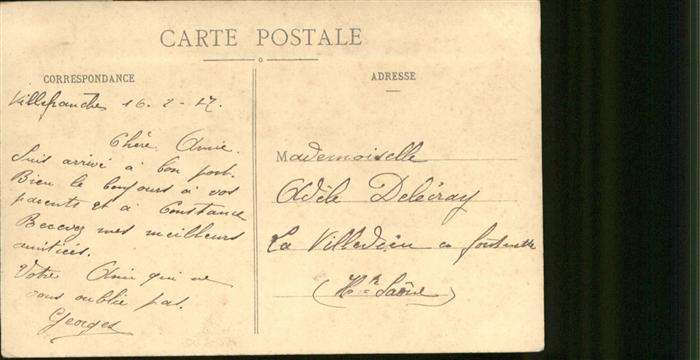 CARTE POSTALE
CORRESPONDANCE
ADRESSE
Villefranche 16-2-17.
Chère Amie.
Suis arrivé à bon port.
Bien le bonjours à vos
parents et à Constance
Recevez mes meilleurs
amitiés.
Votre Ami qui ne
vous oublie pas.
Georges
Mademoiselle
Adèle
La Villedieu en
(Hte Saône)